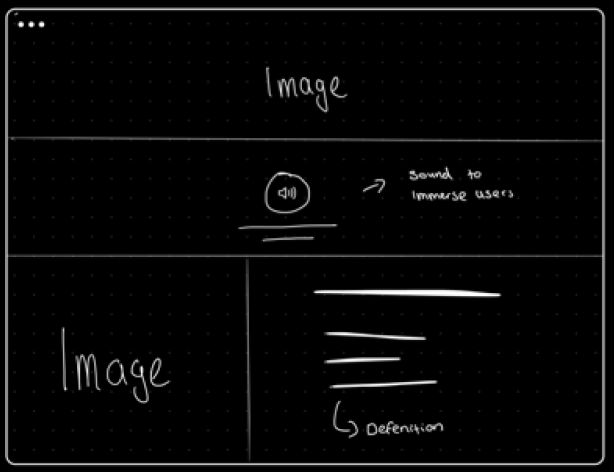 Image
Sound to
immerse users
Image
Defenition